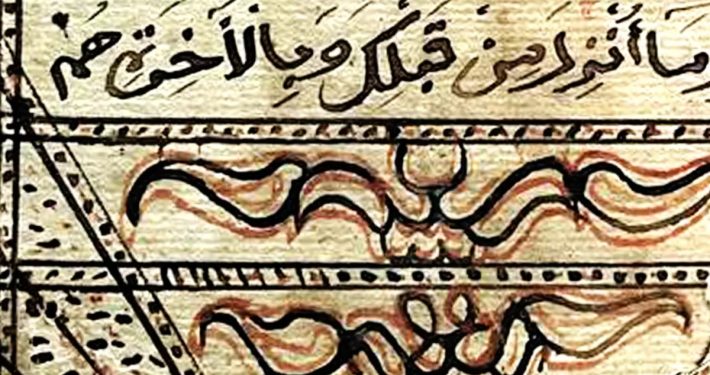 وما أنزل من قبلك وبالأخرة هم